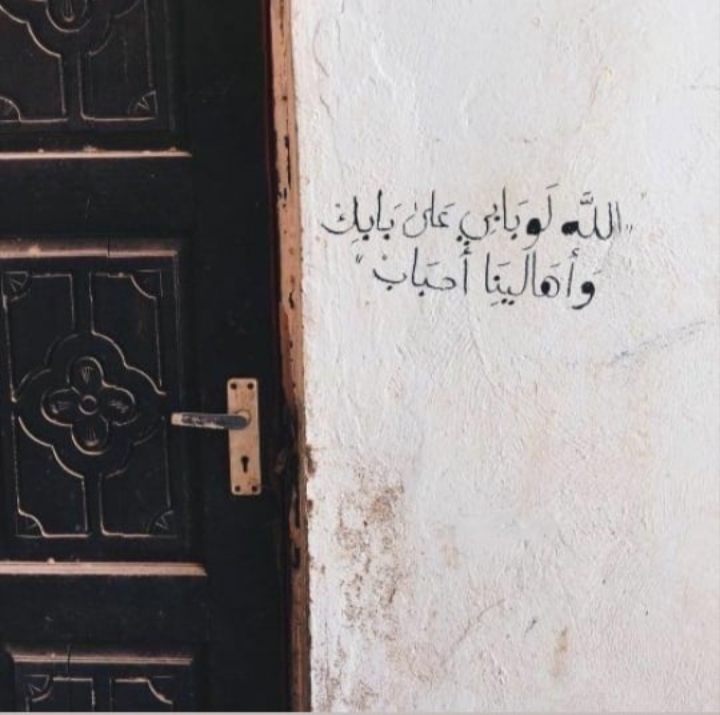 "اللَّه لَو بَابي عَلىٰ بَابِكْ
وَأَهَالينِا أَحبَابْ"